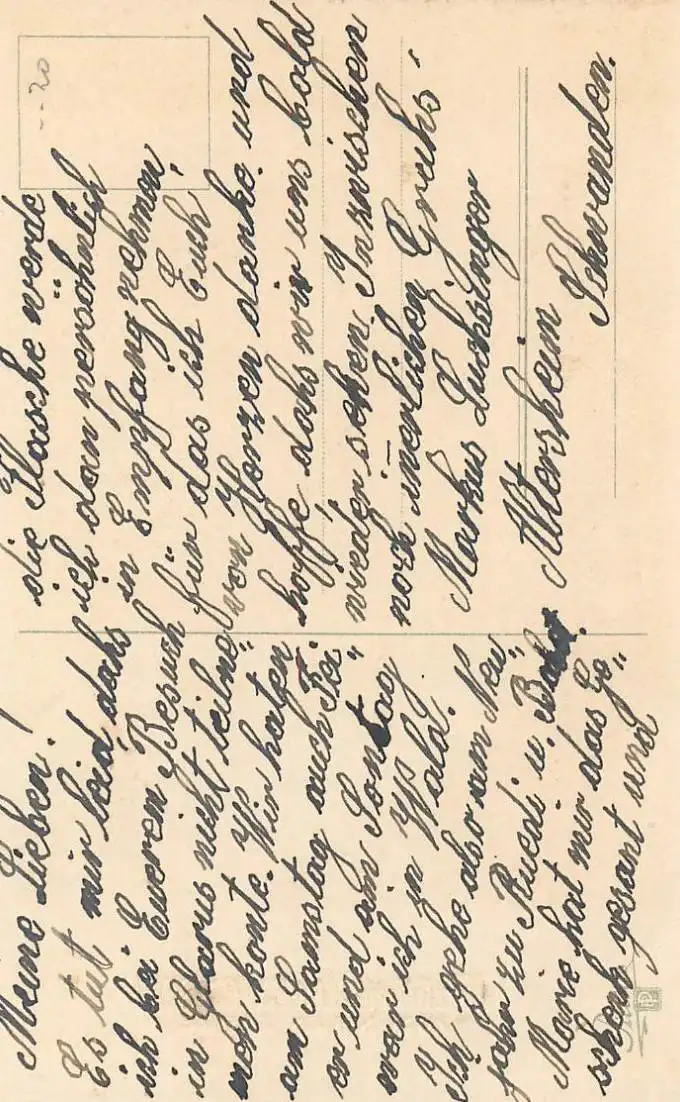 Meine Lieben!
Es tut mir leid, dahs
ich bei Euerem Besuch
in Glarus nicht teilne"
men konte. Wir haten
am Samstag auch Fei"
er und am Sontag
war ich in Wald.
Ich gehe also am Neu"
jahr zu Ruedi u.
Marie hat mir das Ge"
schenk gesant und
die Flasche werde
ich dan persöhnlich
in Empfang nehmen,
für das ich Euch
von Herzen danke und
hoffe, dahs wir uns bald
wieder sehen, Inzwischen
noch inerlichen Gruhs.
Markus Luchsinger
Altersheim
Schwanden.
--20